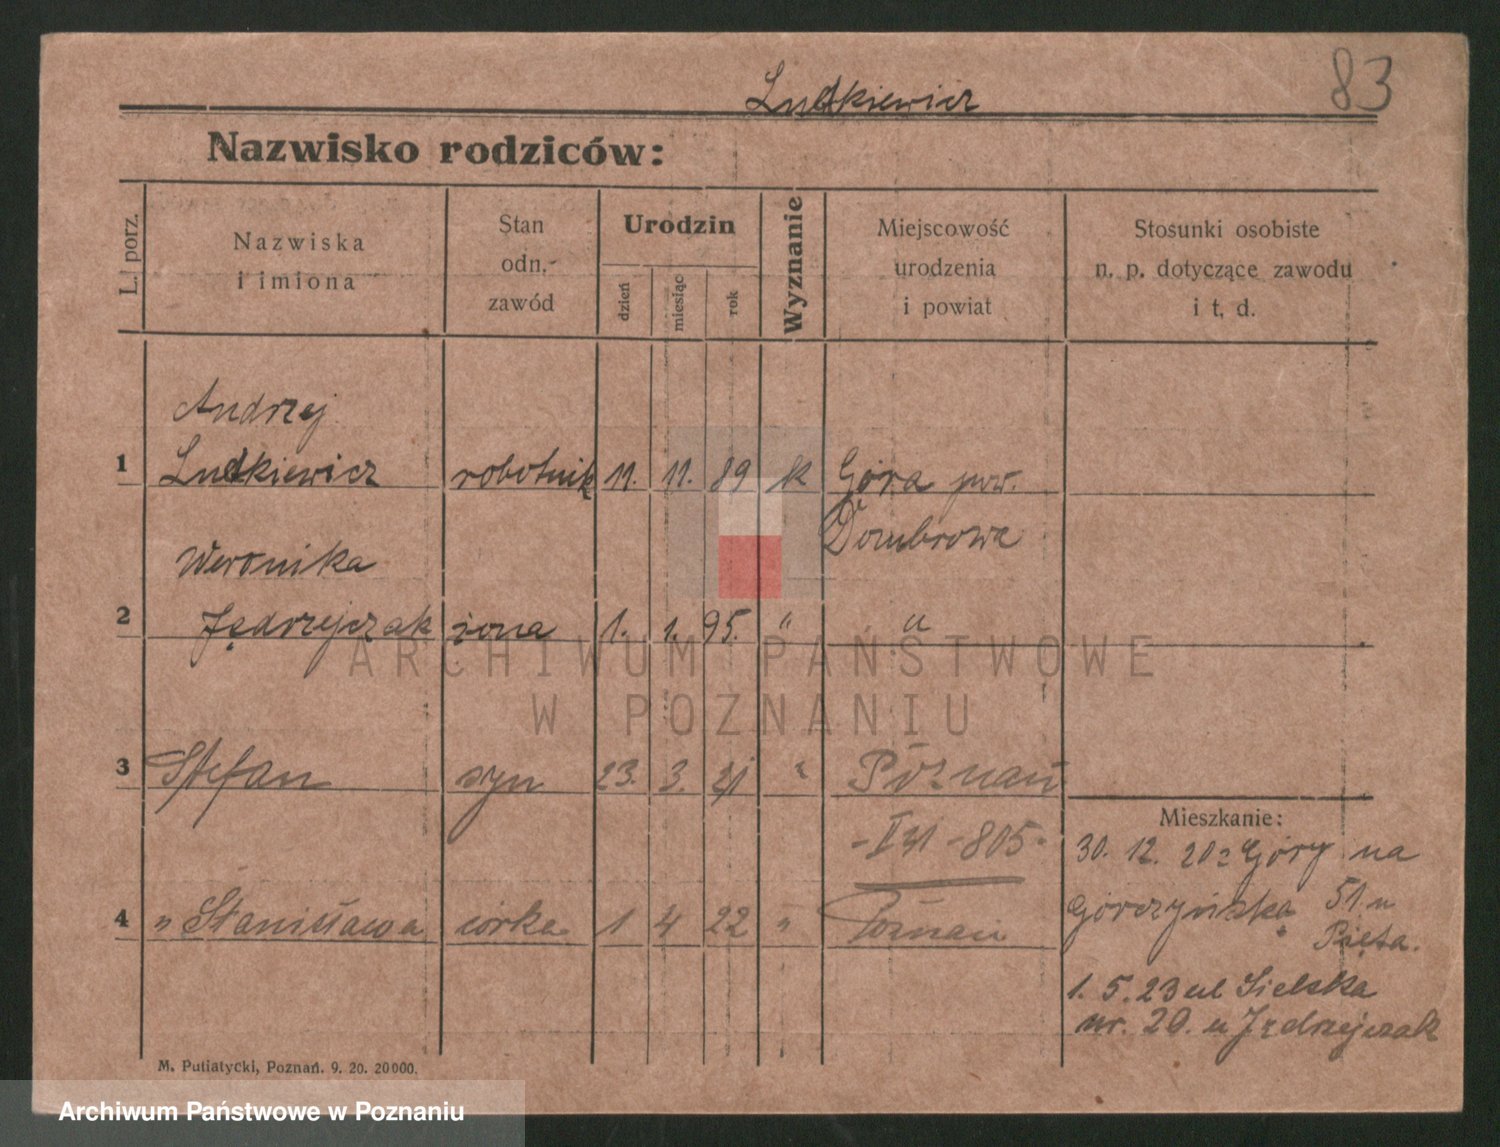 83
Ludkiewicz
Nazwisko rodziców:
L. porz.
Nazwiska
i imiona
Stan
odn.
zawód
Urodzin
dzień
miesiąc
rok
Wyznanie
Miejscowość
urodzenia
i powiat
Stosunki osobiste
n. p. dotyczące zawodu
i t. d.
Andrzej
1 Ludkiewicz robotnik 11. 11. 89 k Góra pow.
Dombrowa
Weronika
2 Jędrzejczak żona 1. 1. 95. " "
3 Stefan syn 23. 3. 21 " Poznań
805
4 " Stanisława córka 1 4 22 " Poznań
Mieszkanie:
30. 12. 20 z Góry na
Górczyńska 51 u
Pięta.
1. 5. 23 ul Sielska
nr. 20. u Jędrzejczak
M. Putiatycki, Poznań. 9. 20. 20000.
ARCHIWUM PAŃSTWOWE
W POZNANIU
Archiwum Państwowe w Poznaniu